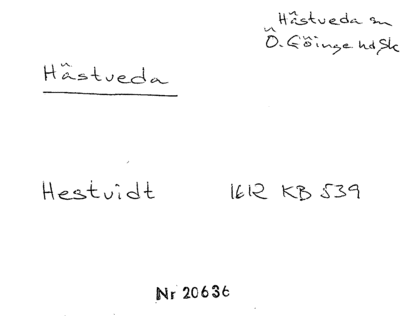 Hästveda sn
Ö. Göinge hd Sk
Hästveda
Hestvidt 1612 KB 539
Nr 20636